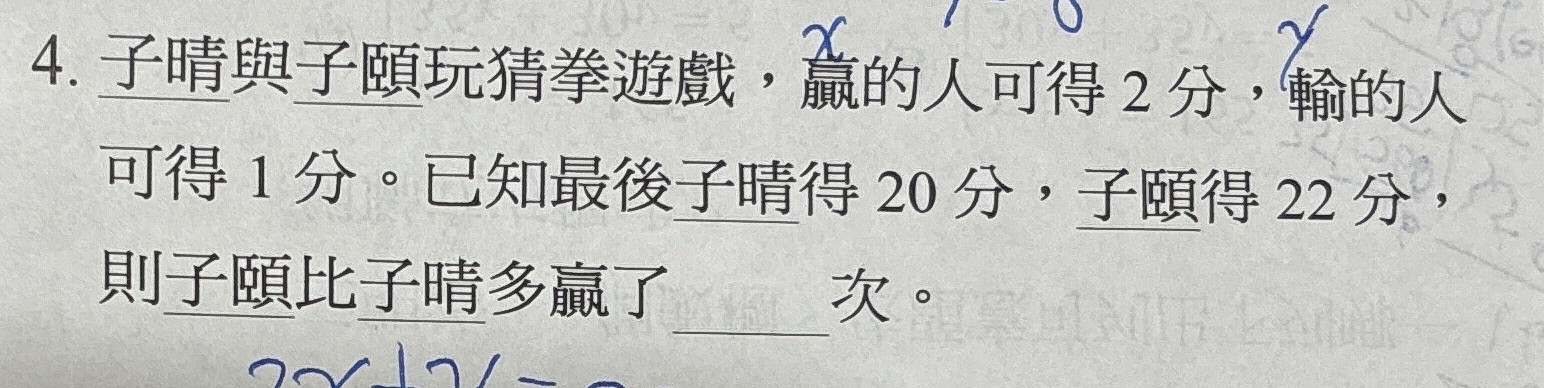 x y
4. 子晴與子頤玩猜拳遊戲，贏的人可得 2 分，輸的人
可得 1 分。已知最後子晴得 20 分，子頤得 22 分，
則子頤比子晴多贏了______次。
2x+y=